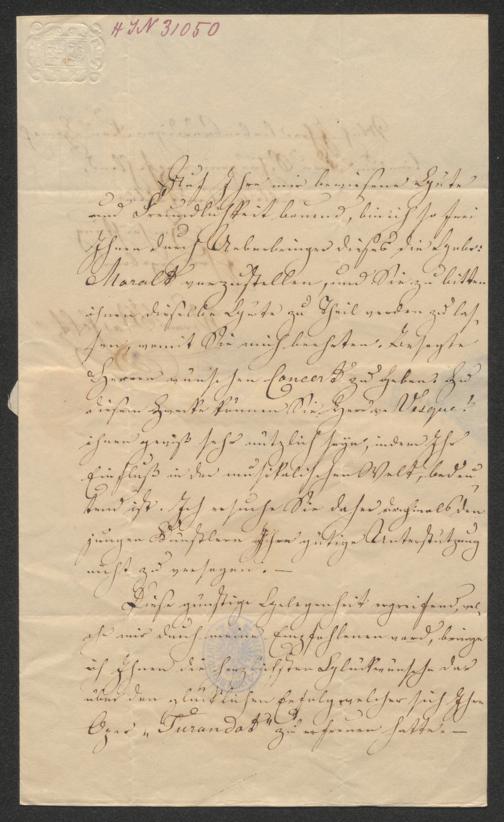 H I N 31050
Auf Ihre mir bewiesene Güte
und Freundlichkeit bauend, bin ich so frei
Ihnen durch Ueberbringer dieses die Gebr:
Moralt vorzustellen, und Sie zu bitten
ihnen dieselbe Güte zu Theil werden zu las-
sen, womit Sie mich beehrten. Besagte
Herren wünschen Concert zu geben: Zu
diesem Zwecke können Sie, Herr v: Vesque!
ihnen gewiß sehr nützlich seyn, indem Ihr
Einfluß in der musikalischen Welt, bedeu-
tend ist. Ich ersuche Sie daher nochmals den
jungen Künstlern Ihre gütige Unterstützung
nicht zu versagen. —
Diese günstige Gelegenheit ergreifend, wel-
che mir durch meine Empfohlenen ward, bringe
ich Ihnen die herzlichsten Glückwünsche dar
über den glücklichen Erfolg welcher sich Ihre
Oper „Turandot" zu erfreuen hatte. —